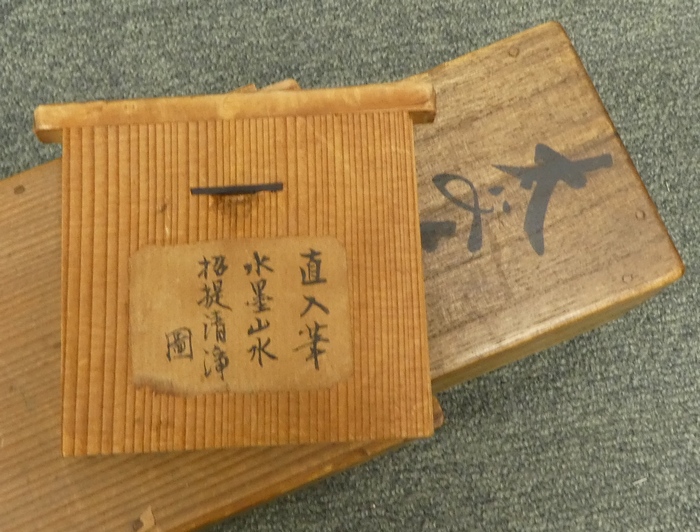 直入筆
水墨山水
招提清浄
圖